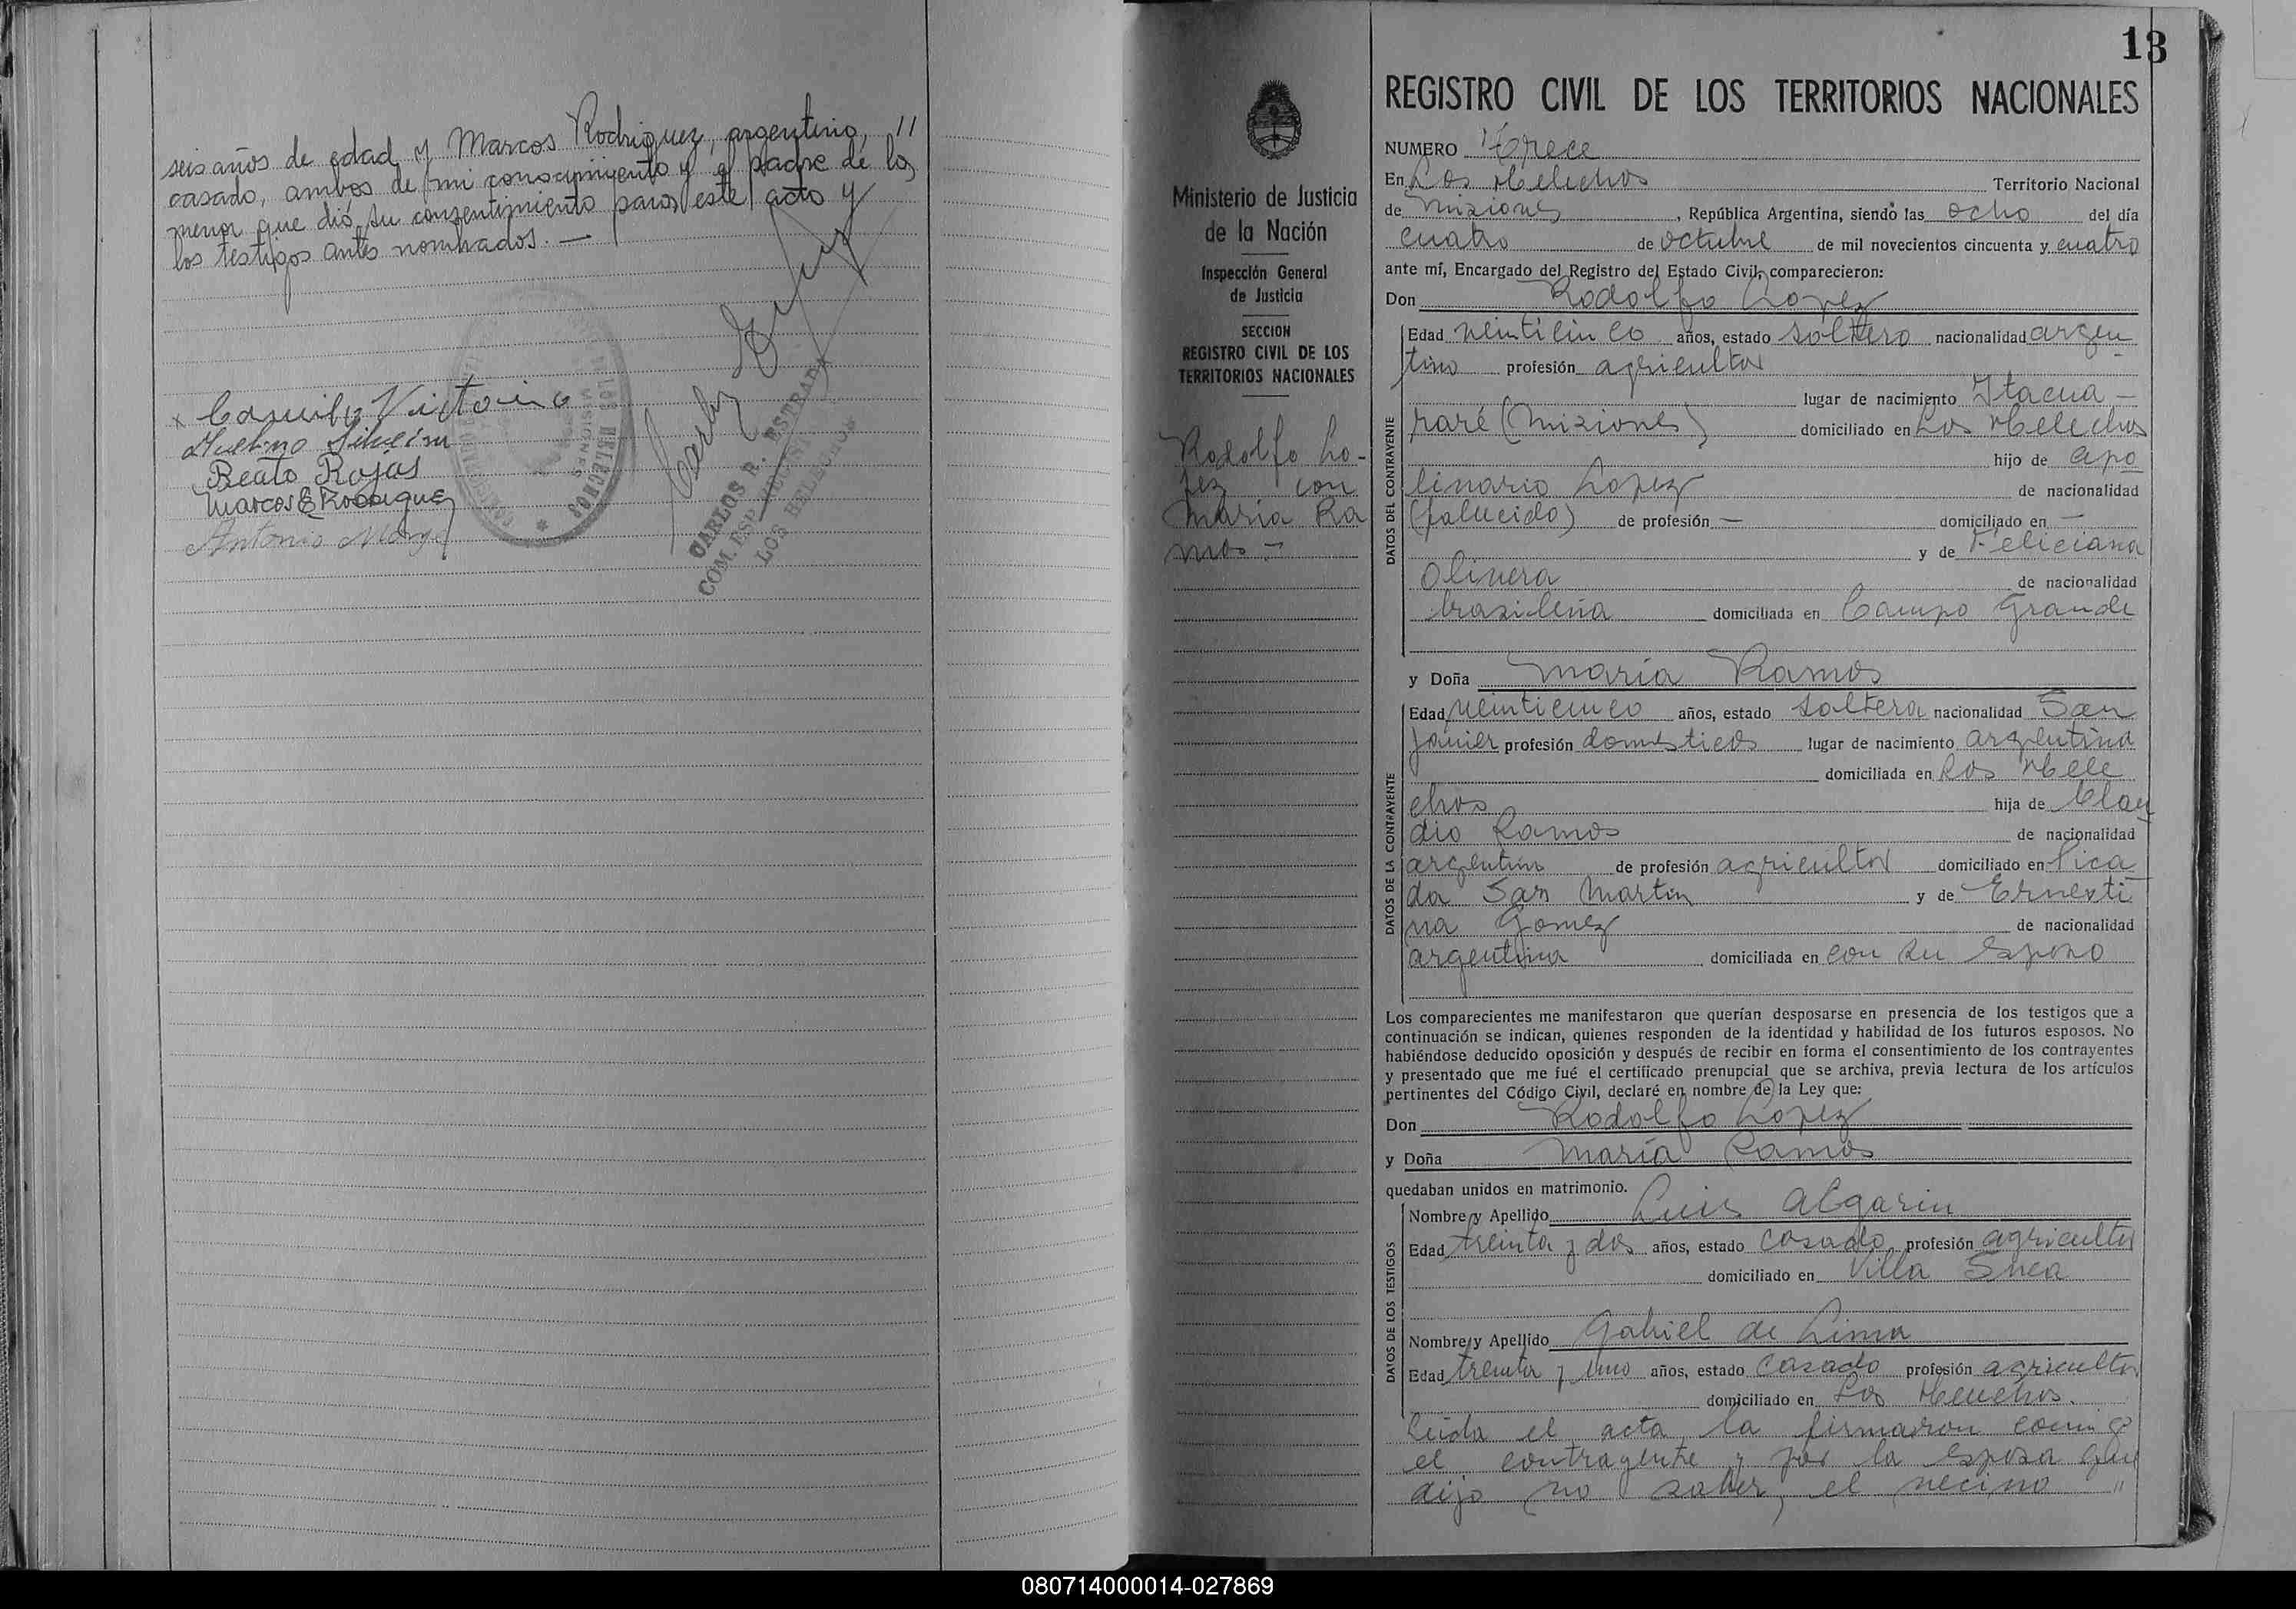 seis años de edad y Marcos Rodriguez, argentino, //
casado, ambos de mi conocimiento y el padre de la
menor que dió su consentimiento para este acto y
los testigos antes nombrados. —
x Casvilla Victorino
Silveira
Beato Rojas
Marcos E Rodriguez
Antonio
CARLOS R. ESTRADA
LOS HELECHOS
13
REGISTRO CIVIL DE LOS TERRITORIOS NACIONALES
Ministerio de Justicia
de la Nación
Inspección General
de Justicia
SECCION
REGISTRO CIVIL DE LOS
TERRITORIOS NACIONALES
Rodolfo Lo-
pez con
Maria Ra
mos -
NUMERO Trece
En Los Helechos Territorio Nacional
de Misiones, República Argentina, siendo las ocho del día
cuatro de octubre de mil novecientos cincuenta y cuatro
ante mí, Encargado del Registro del Estado Civil, comparecieron:
Don Rodolfo Lopez
DATOS DEL CONTRAYENTE
Edad veinticinco años, estado soltero nacionalidad argen
tino profesión agricultor
lugar de nacimiento Itacua-
raré (Misiones) domiciliado en Los Helechos
hijo de Apo
linario Lopez de nacionalidad
(falucido) de profesión — domiciliado en —
y de Feliciana
Olivera de nacionalidad
brasileña domiciliada en Campo Grande
y Doña María Ramos
DATOS DE LA CONTRAYENTE
Edad veinticinco años, estado soltera nacionalidad San
Javier profesión domesticos lugar de nacimiento argentina
domiciliada en Los Hele
chos hija de Clau
dio Ramos de nacionalidad
argentino de profesión agricultor domiciliado en Pica
da San Martin y de Ernesti
na Gomez de nacionalidad
argentina domiciliada en con su esposo
Los comparecientes me manifestaron que querían desposarse en presencia de los testigos que a
continuación se indican, quienes responden de la identidad y habilidad de los futuros esposos. No
habiéndose deducido oposición y después de recibir en forma el consentimiento de los contrayentes
y presentado que me fué el certificado prenupcial que se archiva, previa lectura de los artículos
pertinentes del Código Civil, declaré en nombre de la Ley que:
Don Rodolfo Lopez
y Doña María Ramos
quedaban unidos en matrimonio.
DATOS DE LOS TESTIGOS
Nombre y Apellido Luis Algarin
Edad treinta y dos años, estado casado profesión agricultor
domiciliado en Villa Svea
Nombre y Apellido Gabriel de Lima
Edad treinta y uno años, estado casado profesión agricultor
domiciliado en Los Helechos.
Leida el acta, la firmaron comigo
el contrayente y por la esposa que
dijo no saber, el vecino "
080714000014-027869